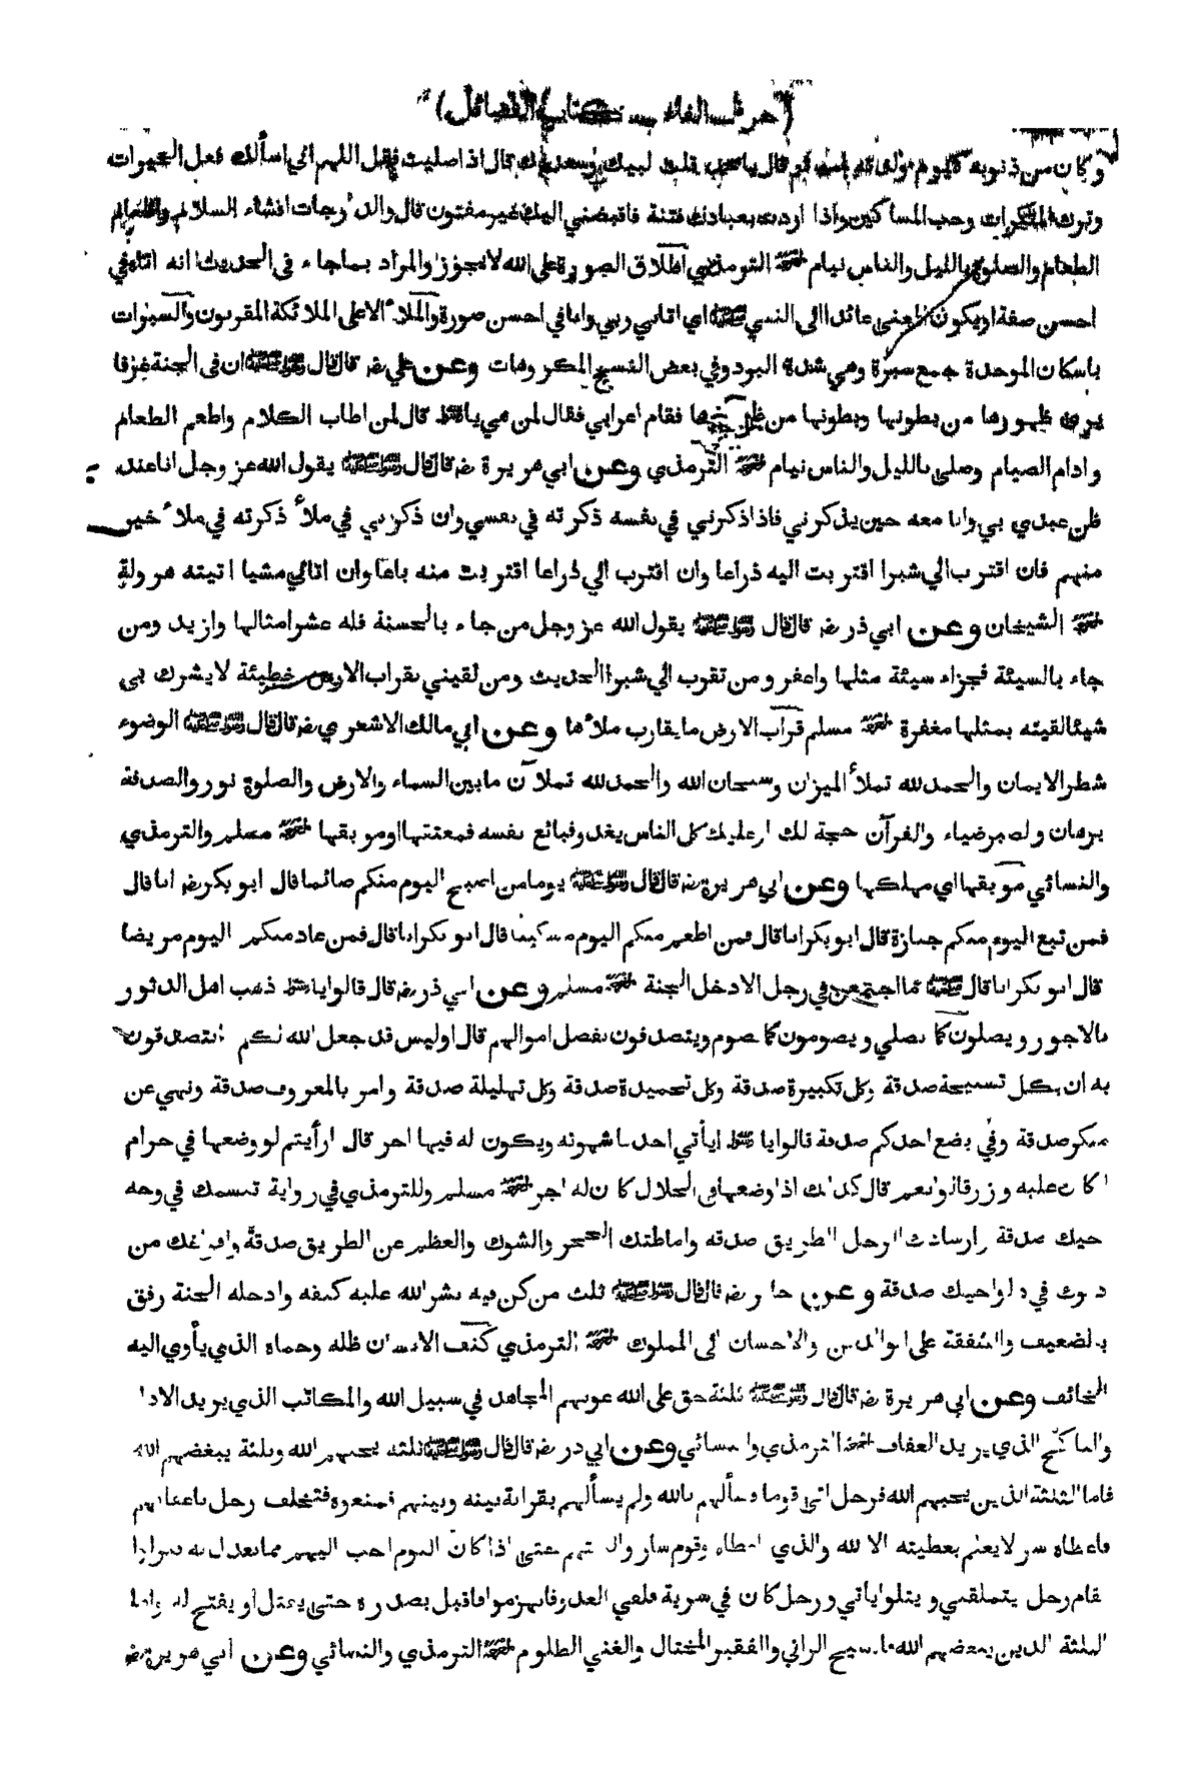 (حرف الفاء كتاب الفضائل)
وكان من ذنوبه كيوم ولدته امه ثم قال يا محمد قلت لبيك وسعديك قال اذا صليت فقل اللهم اني اسألك فعل الخيرات
وترك المنكرات وحب المساكين واذا اردت بعبادك فتنة فاقبضني اليك غير مفتون قال والدرجات افشاء السلام واطعام
الطعام والصلوة بالليل والناس نيام الترمذي اطلاق الصورة على الله لا يجوز والمراد بما جاء فى الحديث انه اتاه في
احسن صفة او يكون المعنى عائدا الى النبي اي اتاني ربي وانا في احسن صورة والملأ الاعلى الملائكة المقربون والسبرات
باسكان الموحدة جمع سبرة وهي شدة البرد وفي بعض النسخ المكروهات وعن علي رضـ قال قال ان فى الجنة غرفا
يرى ظهورها من بطونها وبطونها من ظهورها فقام اعرابي فقال لمن هي يا قال لمن اطاب الكلام واطعم الطعام
وادام الصيام وصلى بالليل والناس نيام الترمذي وعن ابي هريرة رضـ قال قال يقول الله عز وجل انا عند
ظن عبدي بي وانا معه حين يذكرني فاذا ذكرني في نفسه ذكرته في نفسي وان ذكرني في ملأ ذكرته في ملأ خير
منهم فان اقترب الي شبرا اقتربت اليه ذراعا وان اقترب الي ذراعا اقتربت منه باعا وان اتاني مشيا اتيته هرولة
الشيخان وعن ابي ذر رضـ قال قال يقول الله عز وجل من جاء بالحسنة فله عشر امثالها وازيد ومن
جاء بالسيئة فجزاء سيئة مثلها واغفر ومن تقرب الي شبرا الحديث ومن لقيني بقراب الارض خطيئة لا يشرك بي
شيئا لقيته بمثلها مغفرة مسلم قراب الارض ما يقارب ملأها وعن ابي مالك الاشعري رضـ قال قال الوضوء
شطر الايمان والحمد لله تملأ الميزان وسبحان الله والحمد لله تملآن ما بين السماء والارض والصلوة نور والصدقة
برهان والصبر ضياء والقرآن حجة لك او عليك كل الناس يغدو فبائع نفسه فمعتقها او موبقها مسلم والترمذي
والنسائي موبقها اي مهلكها وعن ابي هريرة رضـ قال قال يوما من اصبح اليوم منكم صائما قال ابو بكر رضـ انا قال
فمن تبع اليوم منكم جنازة قال ابو بكر انا قال فمن اطعم منكم اليوم مسكينا قال ابو بكر انا قال فمن عاد منكم اليوم مريضا
قال ابو بكر انا قال ما اجتمعن في رجل الا دخل الجنة مسلم وعن ابي ذر رضـ قال قالوا يا ذهب اهل الدثور
بالاجور ويصلون كما نصلي ويصومون كما نصوم ويتصدقون بفضل اموالهم قال اوليس قد جعل الله لكم تصدقون
به ان بكل تسبيحة صدقة وكل تكبيرة صدقة وكل تحميدة صدقة وكل تهليلة صدقة وامر بالمعروف صدقة ونهي عن
منكر صدقة وفي بضع احدكم صدقة قالوا يا ايأتي احدنا شهوته ويكون له فيها اجر قال ارأيتم لو وضعها في حرام
اكان عليه وزر قالوا نعم قال كذلك اذا وضعها في الحلال كان له اجر مسلم وللترمذي في رواية تبسمك في وجه
اخيك صدقة وارشادك الرجل الطريق صدقة واماطتك الحجر والشوك والعظم عن الطريق صدقة وافراغك من
دلوك في دلو اخيك صدقة وعن جابر رضـ قال قال ثلث من كن فيه نشر الله عليه كنفه وادخله الجنة رفق
بالضعيف والشفقة على الوالدين والاحسان الى المملوك الترمذي كنف الانسان ظله وحماه الذي يأوي اليه
الخائف وعن ابي هريرة رضـ قال قال ثلثة حق على الله عونهم المجاهد في سبيل الله والمكاتب الذي يريد الادا
والناكح الذي يريد العفاف الترمذي والنسائي وعن ابي ذر رضـ قال قال ثلثة يحبهم الله وثلثة يبغضهم الله
فاما الثلثة الذين يحبهم الله فرجل اتى قوما فسألهم بالله ولم يسألهم بقرابة بينه وبينهم فمنعوه فتخلف رجل باعقابهم
فاعطاه سرا لا يعلم بعطيته الا الله والذي اعطاه وقوم ساروا ليلتهم حتى اذا كان النوم احب اليهم مما يعدل به نزلوا
فقام رجل يتملقني ويتلو اياتي ورجل كان في سرية فلقي العدو فانهزموا فاقبل بصدره حتى يقتل او يفتح له واما
الثلثة الذين يبغضهم الله فالشيخ الزاني والفقير المختال والغني الظلوم الترمذي والنسائي وعن ابي هريرة رضـ